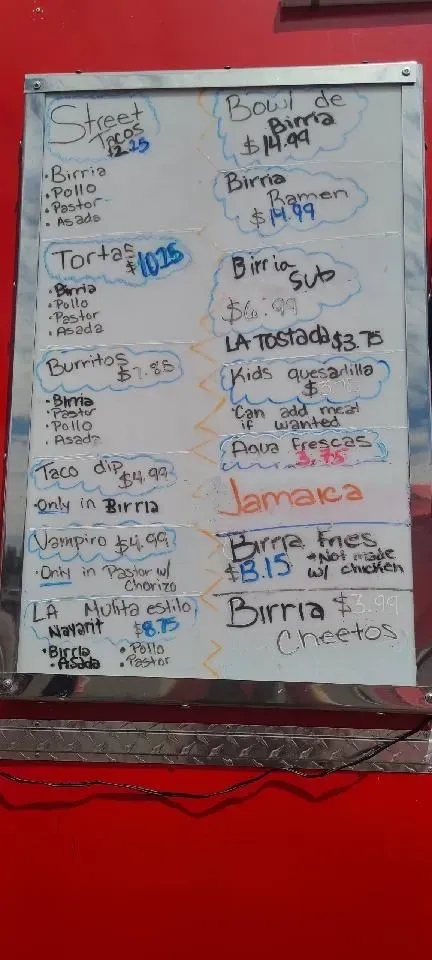 Street
Tacos
$2.25
• Birria
• Pollo
• Pastor
• Asada
Tortas
$10.25
• Birria
• Pollo
• Pastor
• Asada
Burritos
$7.85
• Birria
• Pastor
• Pollo
• Asada
Taco dip
$4.99
• Only in Birria
Vampiro $4.99
• Only in Pastor w/
Chorizo
LA Mulita estilo
Nayarit $8.75
• Birria • Pollo
• Asada • Pastor
Bowl de
Birria
$14.99
Birria
Ramen
$14.99
Birria
Sub
$6.99
LA TOSTADA $3.75
Kids quesadilla
$
Can add meat
if wanted
Aqua Frescas
3.75
Jamaica
Birria Fries
$13.15 *Not made
w/ chicken
Birria $3.99
Cheetos